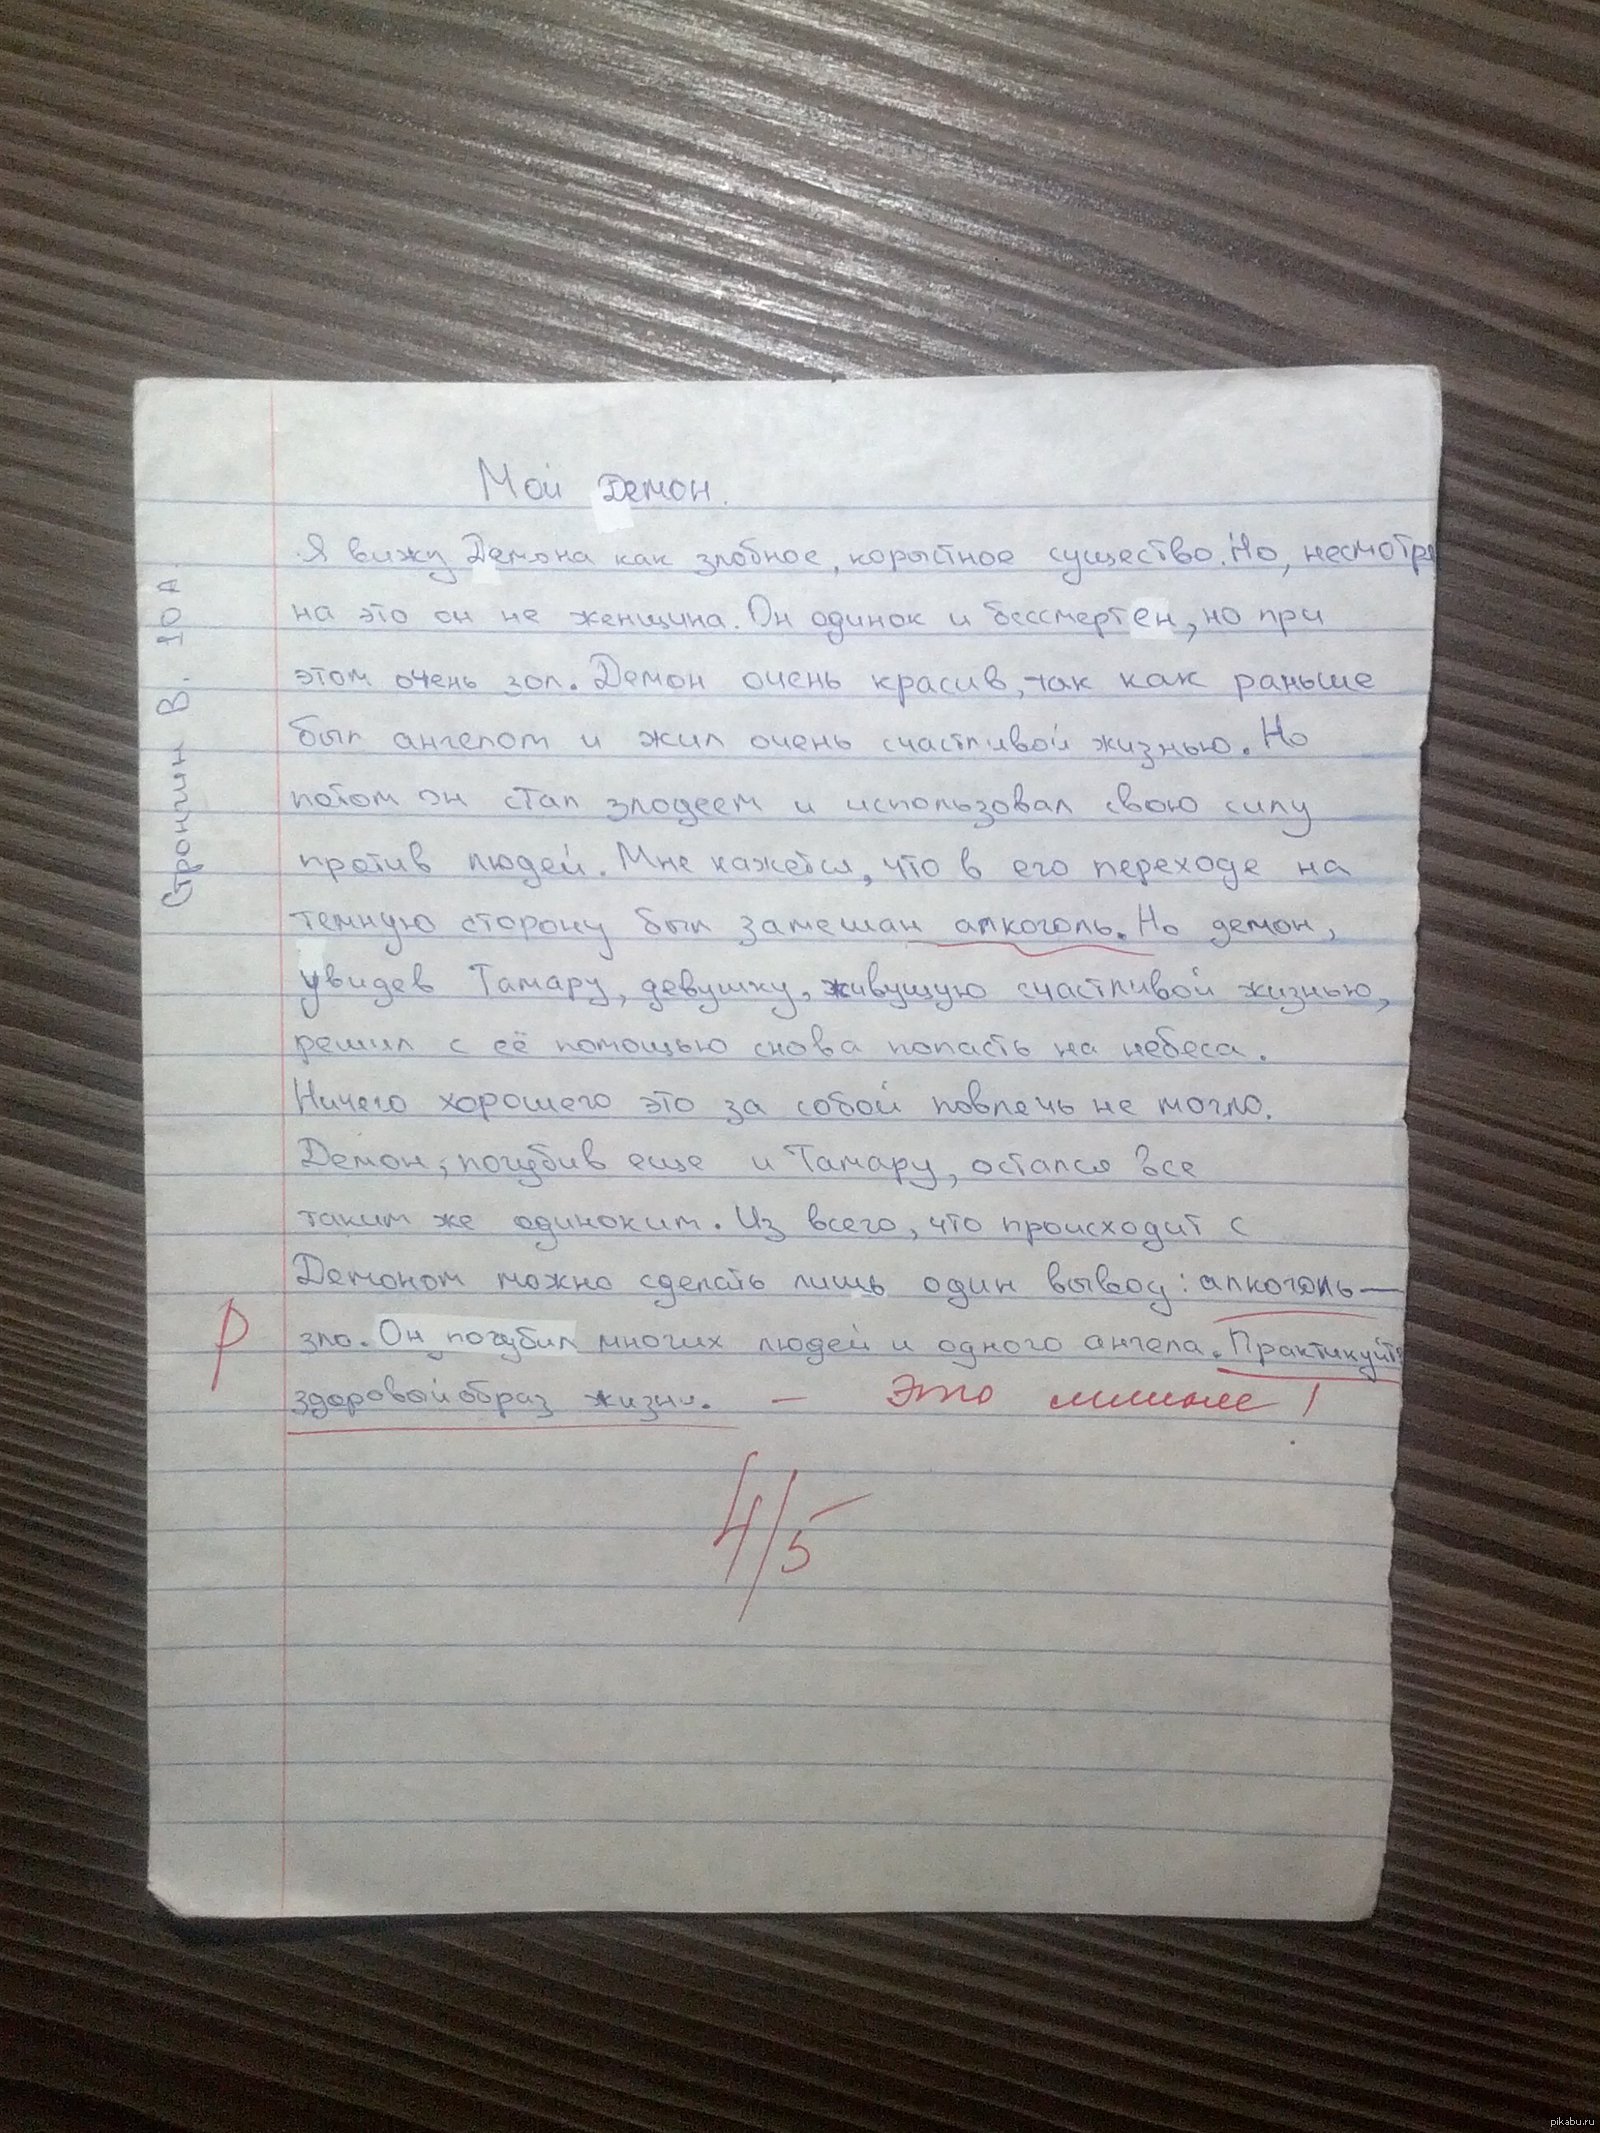 Мой Демон.
Я вижу Демона как злобное, корыстное существо. Но, несмотря
на это он не женщина. Он одинок и бессмертен, но при
этом очень зол. Демон очень красив, так как раньше
был ангелом и жил очень счастливой жизнью. Но
потом он стал злодеем и использовал свою силу
против людей. Мне кажется, что в его переходе на
темную сторону был замешан алкоголь. Но демон,
увидев Тамару, девушку, живущую счастливой жизнью,
решил с её помощью снова попасть на небеса.
Ничего хорошего это за собой повлечь не могло.
Демон, погубив еще и Тамару, остался все
таким же одиноким. Из всего, что происходит с
Демоном можно сделать лишь один вывод: алкоголь —
зло. Он погубил многих людей и одного ангела. Практикуйте
здоровый образ жизни. — Это лишнее!
Р
4/5
Стронгин В. 10 А.
pikabu.ru